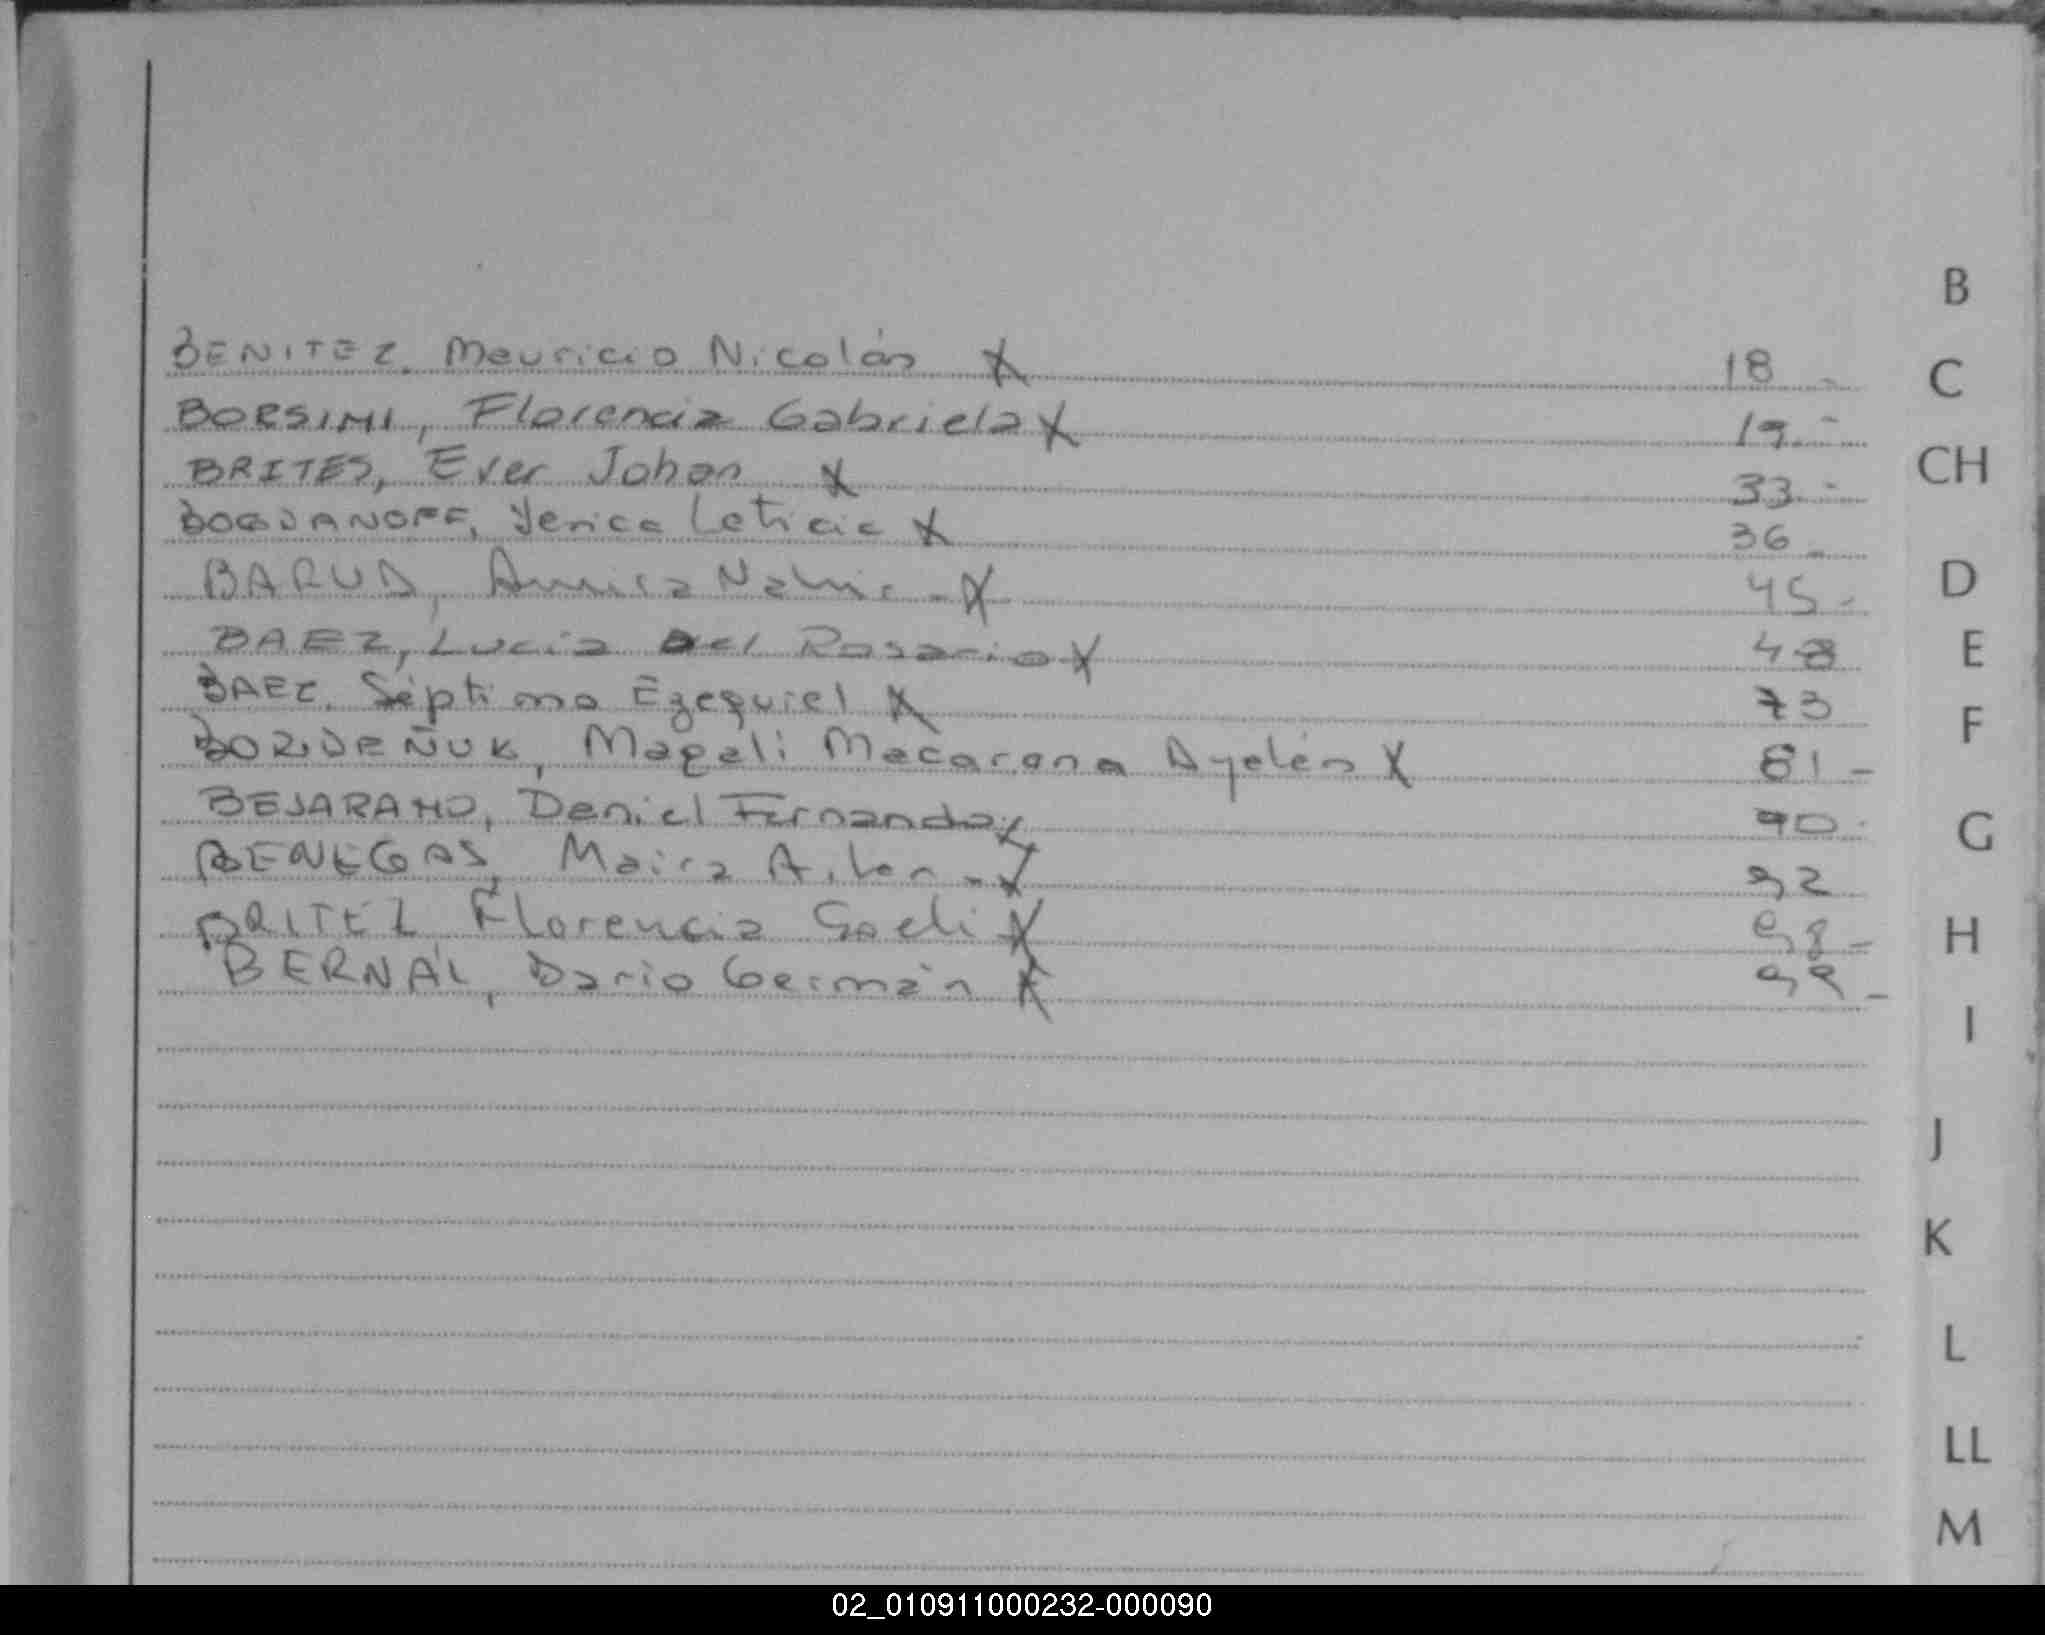 BENITEZ. Mauricio Nicolás X 18 -
BORSINI, Florencia Gabriela X 19.-
BRITES, Ever Johan X 33.-
BOGDANOFF, Yenica Leticia X 36 -
BARUD, Amira Nahir - X 45 -
BAEZ, Lucia del Rosario X 48
BAEZ. Séptimo Ezequiel X 73
BORIDEÑUK, Magali Macarena Ayelén X 81 -
BEJARANO, Daniel Fernando X 90.
BENEGAS, Maira Ailen - X 92
BRITEZ Florencia Soeli X 98 -
BERNAL, Dario Germán X 99 -
B
C
CH
D
E
F
G
H
I
J
K
L
LL
M
02_010911000232-000090